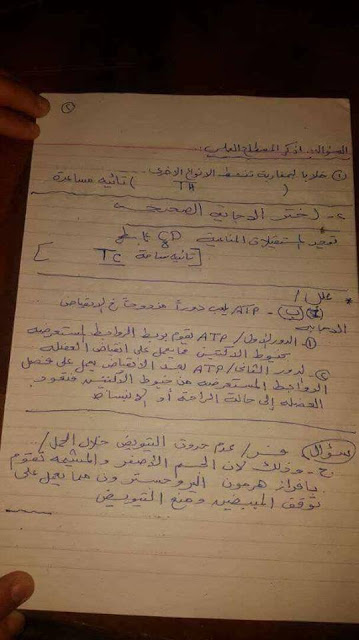 (٢)
السؤال: اذكر المصطلح العلمى:
خلايا ليمفاوية تنشط الانواع الاخرى
( TH ) تائية مساعدة
٢- اختر الاجابة الصحيحة
المناعية CD8
[تائية سامة TC]
علل /
ب - ATP يلعب دوراً مزدوجاً فى الانقباض
① الدور الاول / ATP تقوم بربط الروابط المستعرضه
بخيوط الاكتين مما يعمل على انقباض العضله
② الدور الثانى / ATP بعد الانقباض يعمل على فصل
الروابط المستعرضه من خيوط الاكتين فتعود
العضله إلى حالة الراحة أو الانبساط
سؤال فسر / عدم حدوث التبويض خلال الحمل /
ج - وذلك لان الجسم الأصفر والمشيمه تقوم
بافراز هرمون البروجسترون مما يعمل على
توقف المبيضين ومنع التبويض